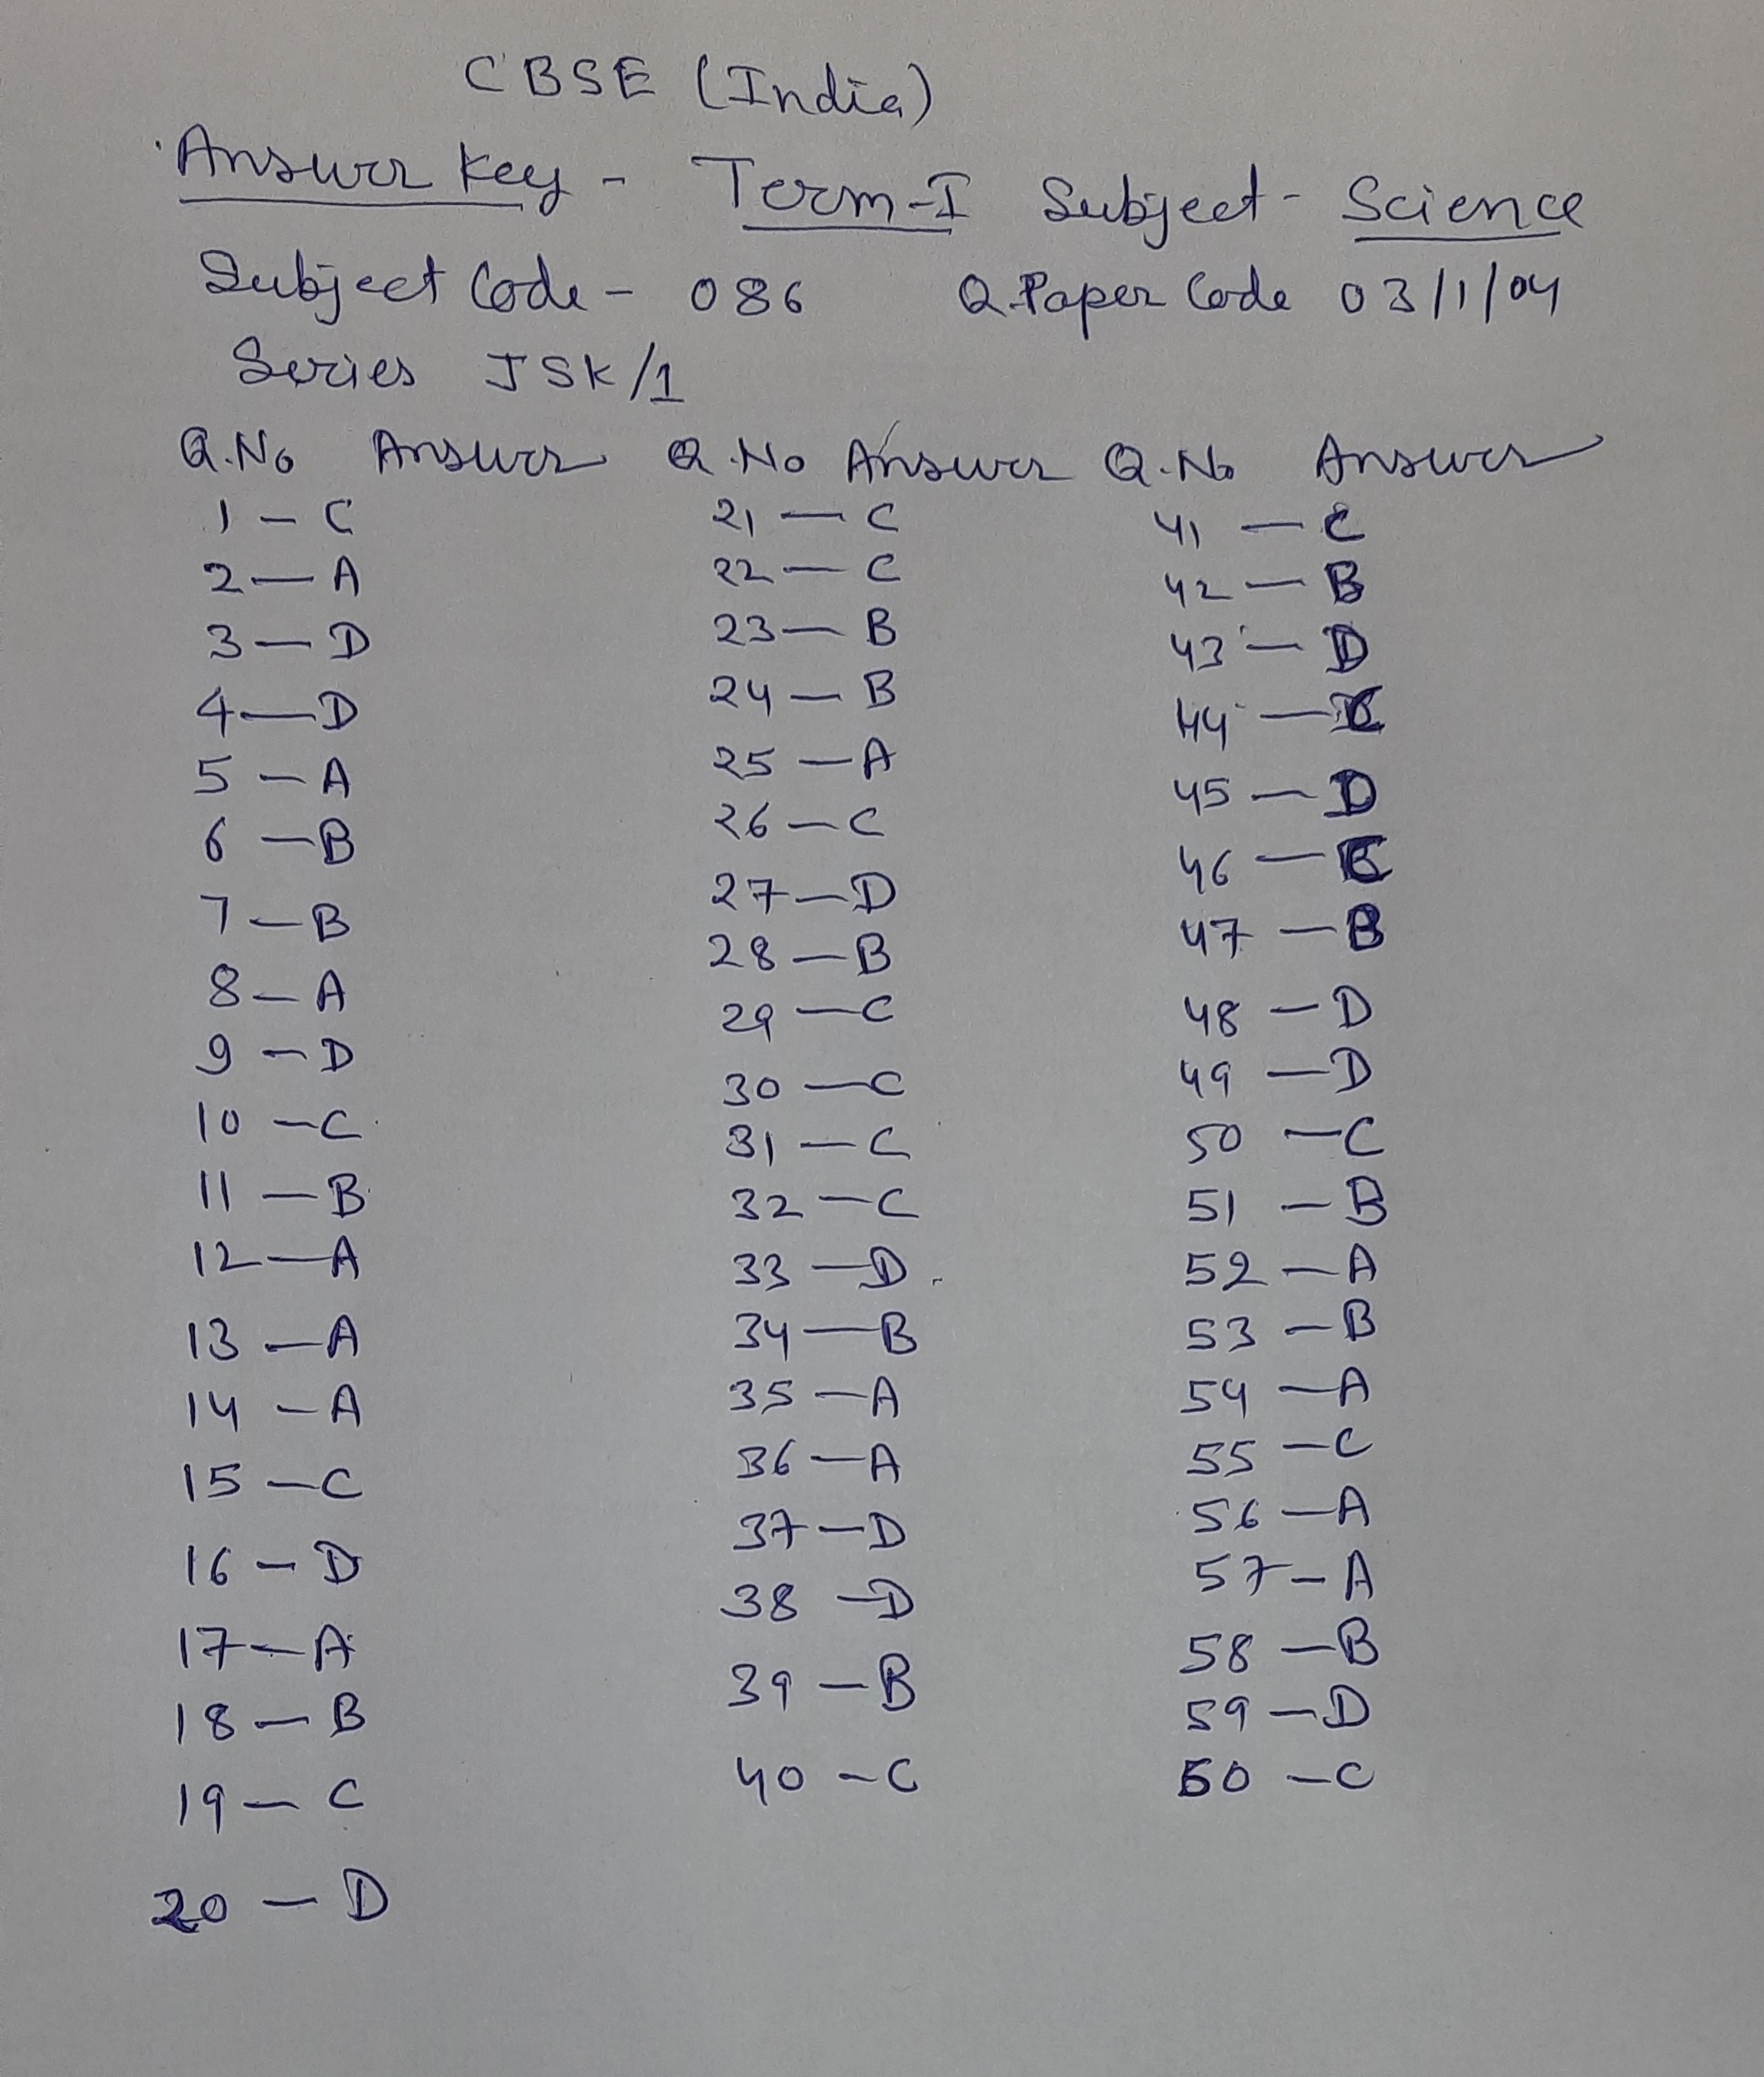 CBSE (India)
Answer Key - Term-I Subject - Science
Subject Code - 086 Q.Paper Code 03/1/04
Series JSK/1
Q.No Answer Q.No Answer Q.No Answer
1 - C 21 - C 41 - C
2 - A 22 - C 42 - B
3 - D 23 - B 43 - D
4 - D 24 - B 44 -
5 - A 25 - A 45 - D
6 - B 26 - C 46 -
7 - B 27 - D 47 - B
8 - A 28 - B 48 - D
9 - D 29 - C 49 - D
10 - C 30 - C 50 - C
11 - B 31 - C 51 - B
12 - A 32 - C 52 - A
13 - A 33 - D 53 - B
14 - A 34 - B 54 - A
15 - C 35 - A 55 - C
16 - D 36 - A 56 - A
17 - A 37 - D 57 - A
18 - B 38 - D 58 - B
19 - C 39 - B 59 - D
20 - D 40 - C 60 - C